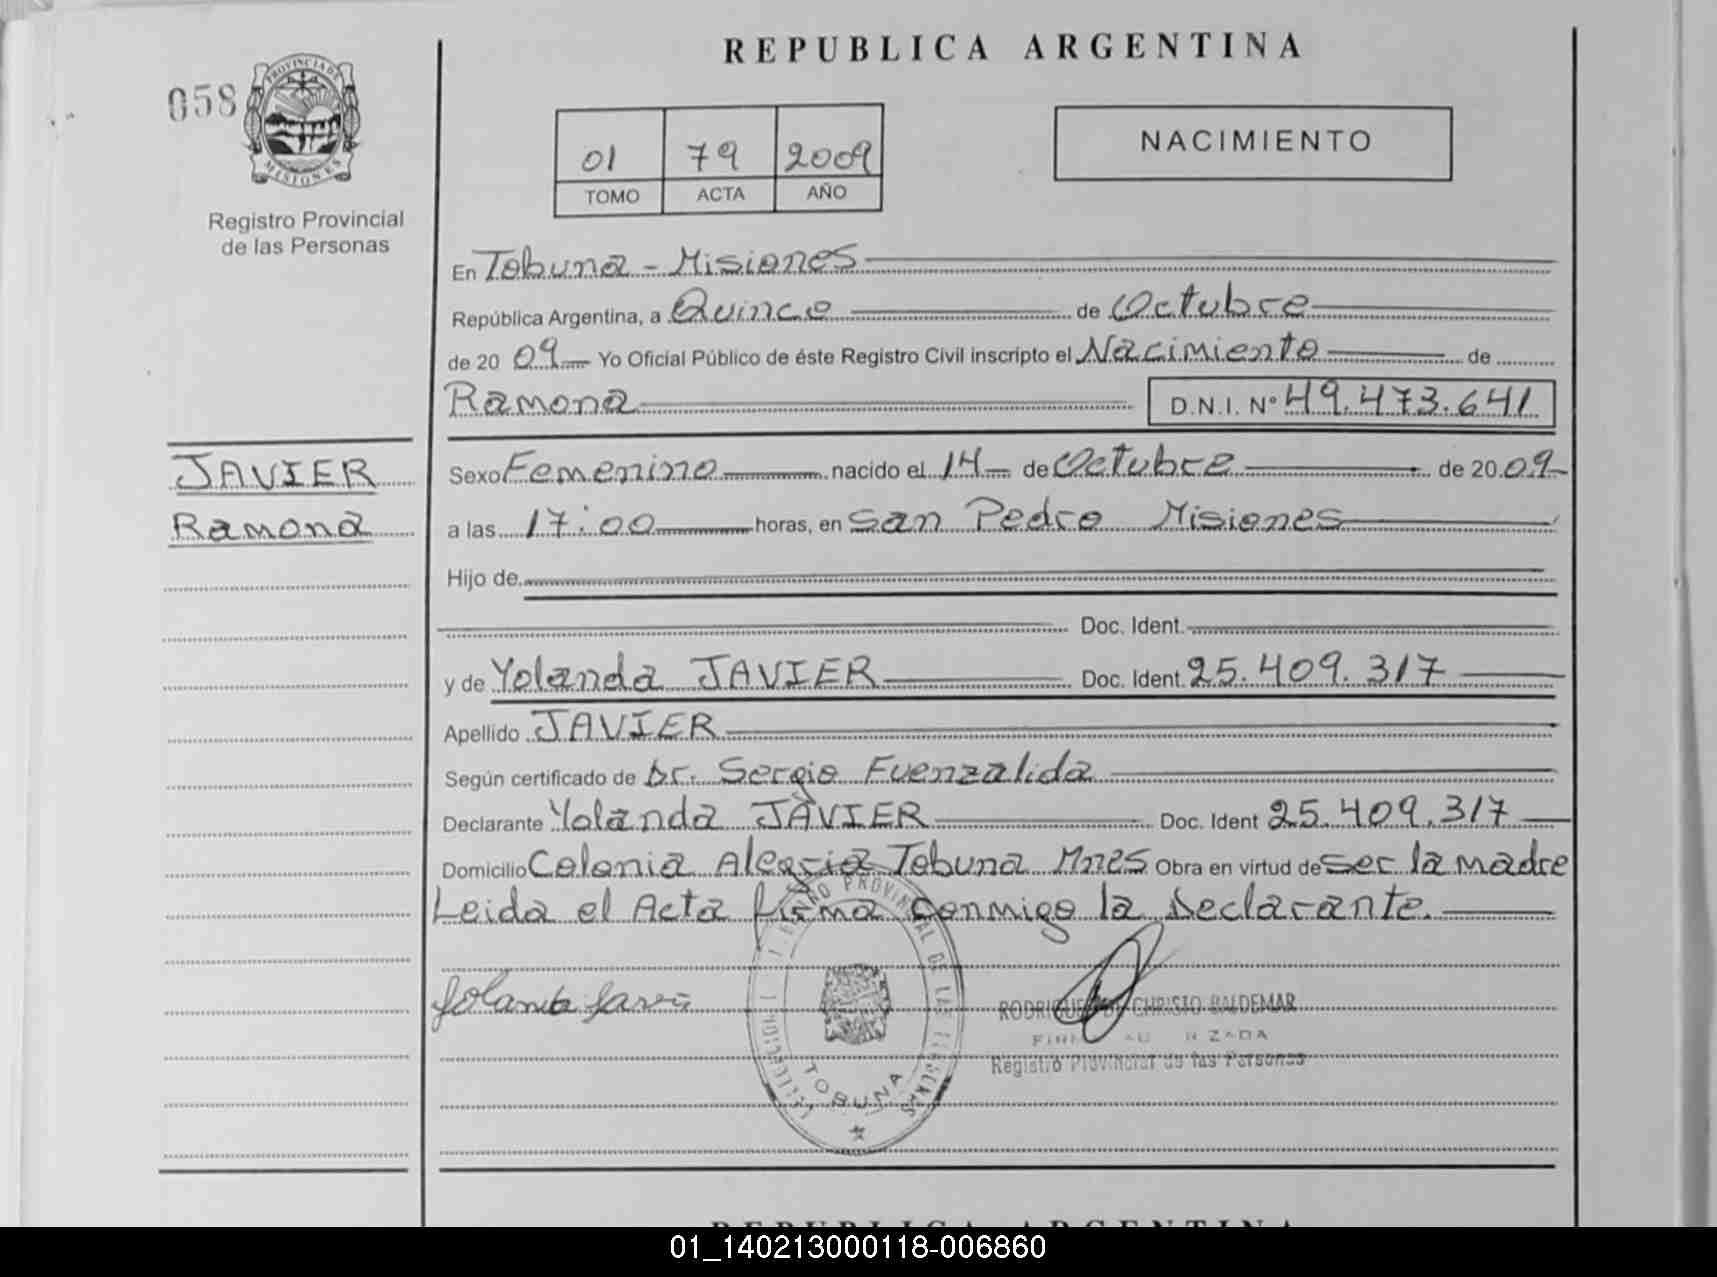 REPUBLICA ARGENTINA
058
PROVINCIA DE
MISIONES
Registro Provincial
de las Personas
01 79 2009
TOMO ACTA AÑO
NACIMIENTO
En Tobuna - Misiones
República Argentina, a Quince de Octubre
de 20 09 Yo Oficial Público de éste Registro Civil inscripto el Nacimiento de
Ramona D.N.I. N° 49.473.641
JAVIER
Ramona
Sexo Femenino nacido el 14 de Octubre de 20 09
a las 17:00 horas, en San Pedro Misiones
Hijo de
Doc. Ident.
y de Yolanda JAVIER Doc. Ident. 25.409.317
Apellido JAVIER
Según certificado de Dr. Sergio Fuenzalida
Declarante Yolanda JAVIER Doc. Ident 25.409.317
Domicilio Colonia Alegria Tobuna Mnes Obra en virtud de ser la madre
Leida el Acta firma conmigo la Declarante.
Yolanda Javier
PROVINCIAL DE LAS
TOBUNA
CHRISTO BALDEMAR
Registro Provincial de las Personas
REPUBLICA ARGENTINA
01_140213000118-006860